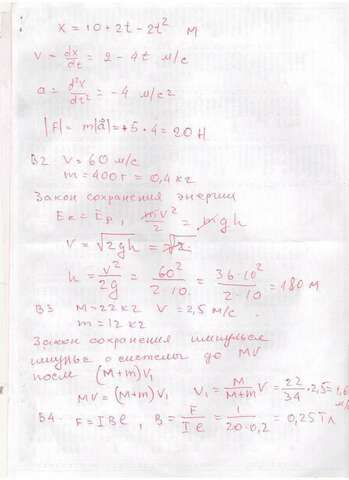 x = 10 + 2t - 2t² м
v = dx/dt = 2 - 4t м/с
a = d²x/dt² = -4 м/с²
|F| = m|a| = +5 · 4 = 20 Н
В2 V = 60 м/с
m = 400 г = 0,4 кг
Закон сохранения энергии
Eк = Eр, mv²/2 = mgh
V = √2gh = √2
h = v²/2g = 60²/2·10 = 36·10²/2·10 = 180 м
В3 M = 22 кг V = 2,5 м/с
m = 12 кг
Закон сохранения импульса
импульс системы до MV
после (M+m)V₁
MV = (M+m)V₁ V₁ = M/M+m V = 22/34 · 2,5 = 1,6
В4 F = IBl, B = F/Il = 1/20·0,2 = 0,25 Тл